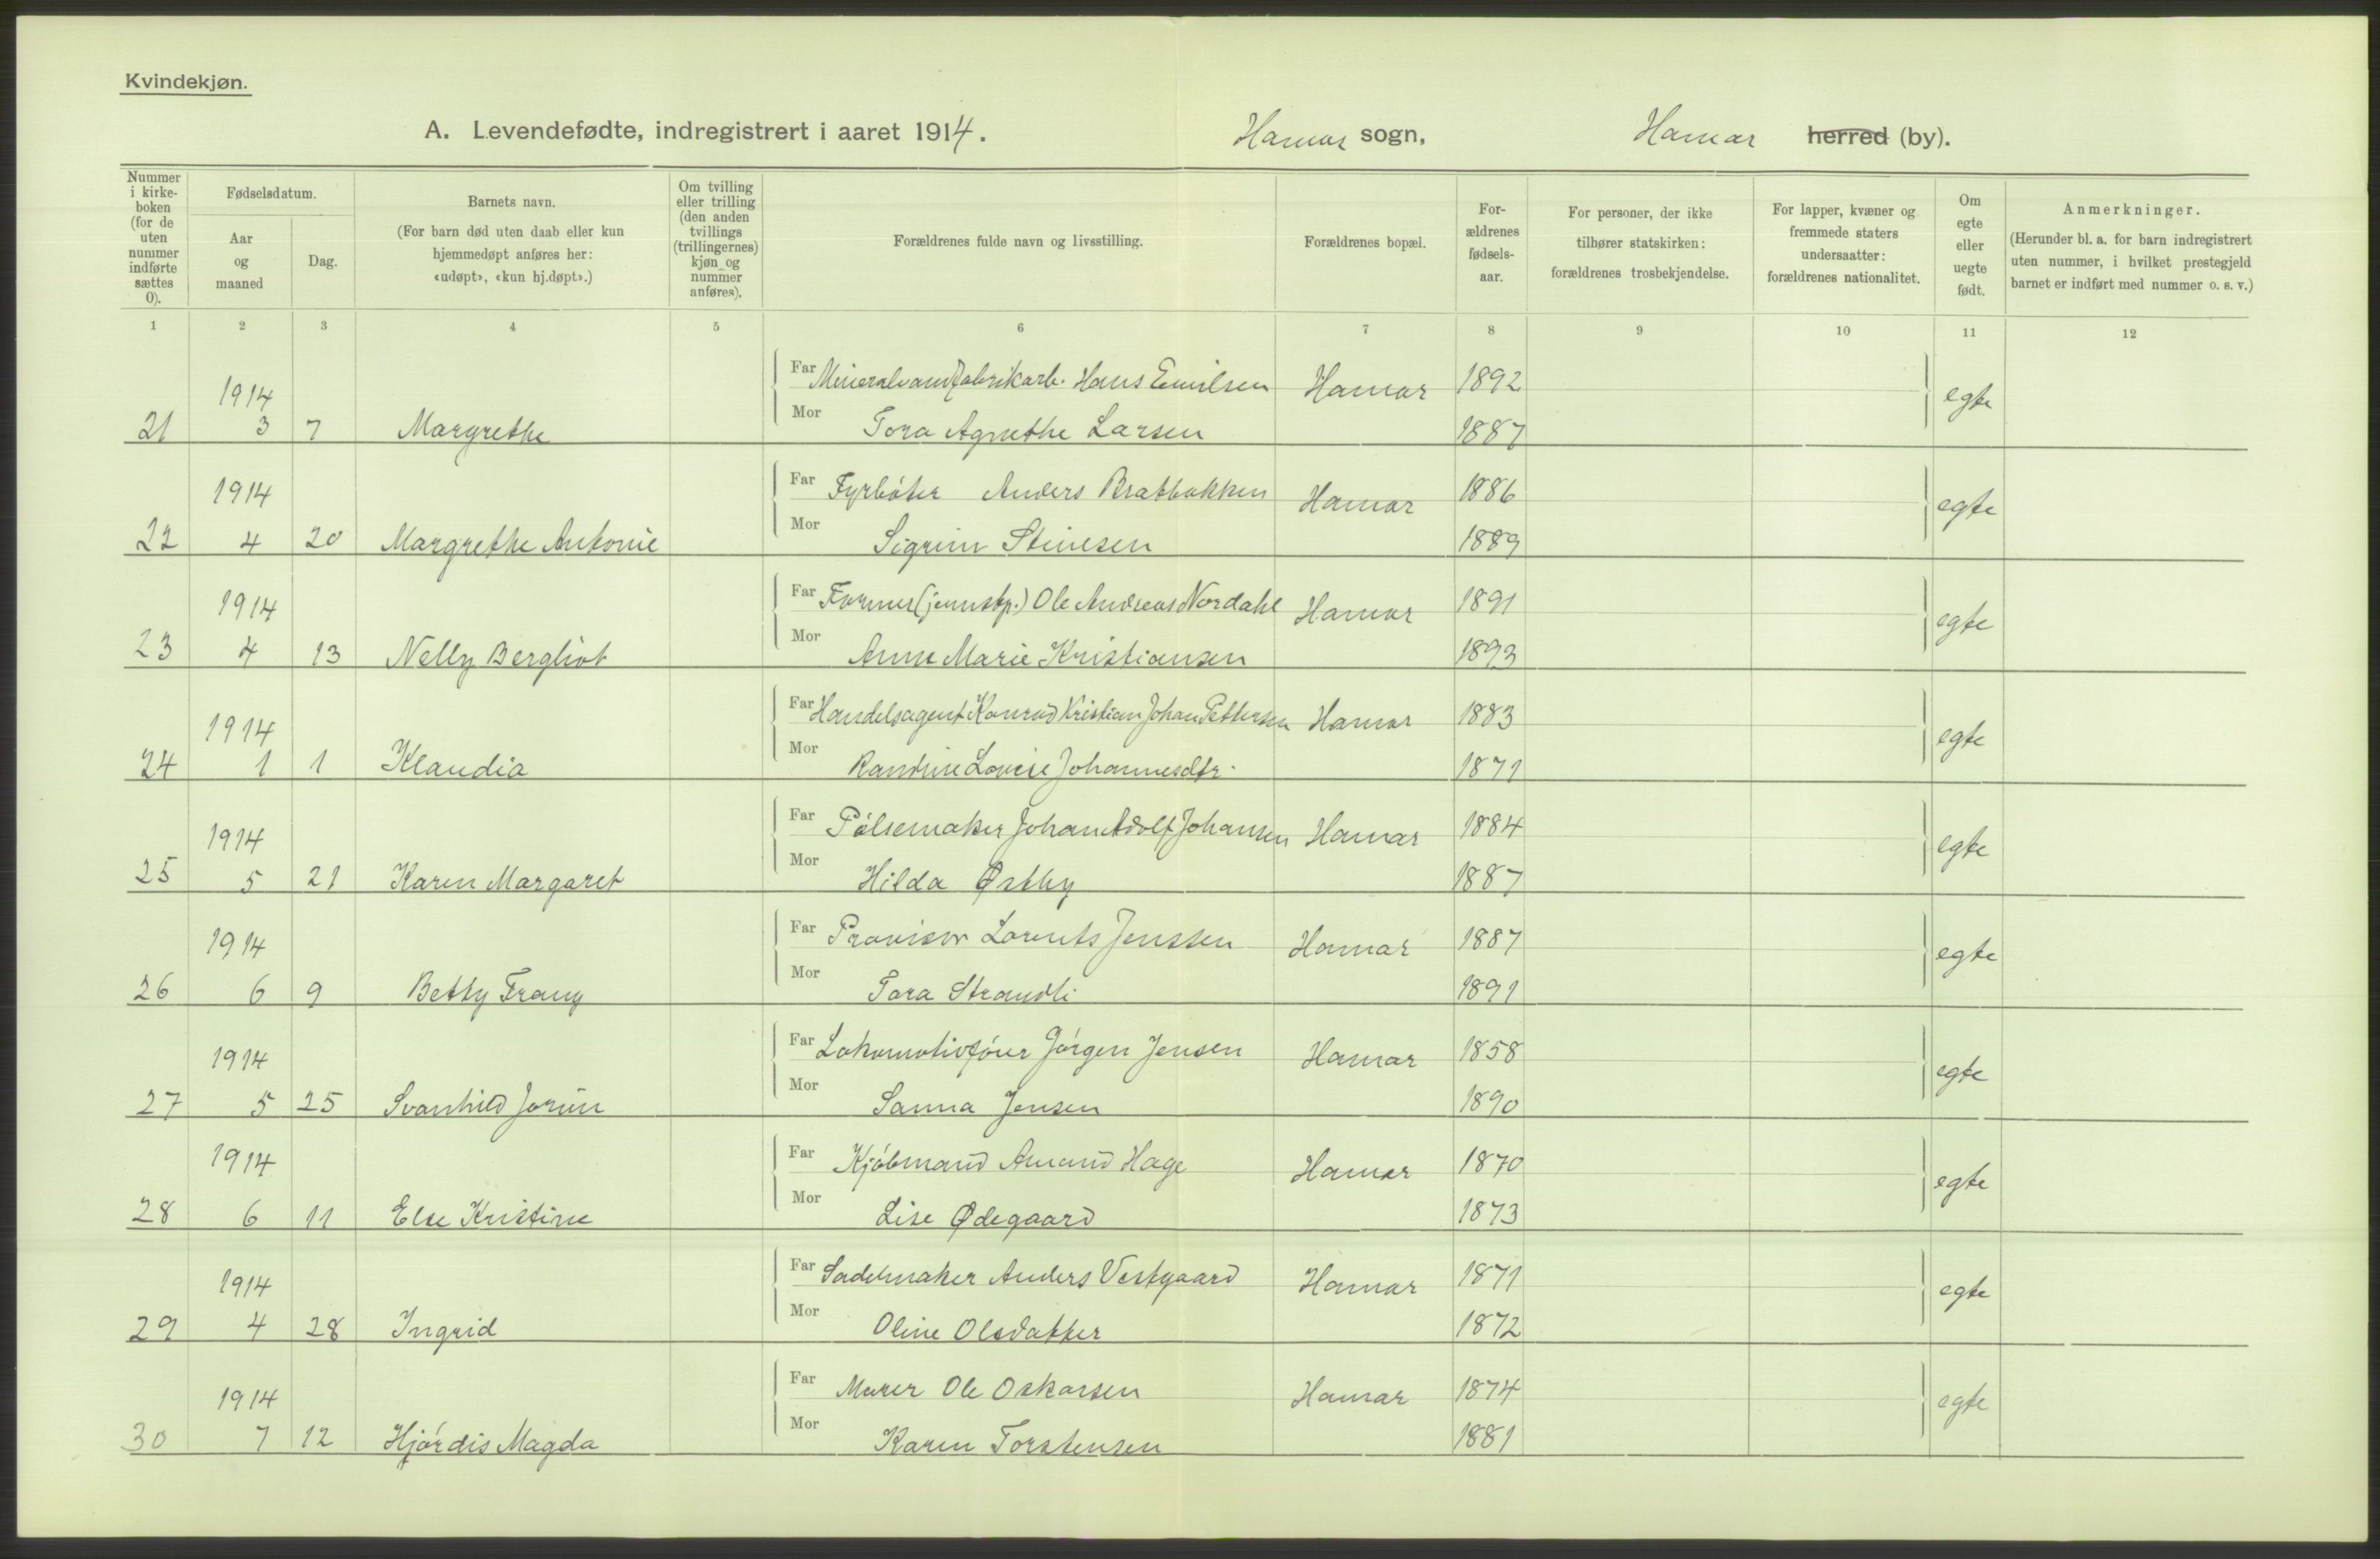 Kvindekjøn.
A. Levendefødte, indregistrert i aaret 1914. Hamar sogn, Hamar herred (by).
Nummer i kirke-boken (for de uten nummer indførte sættes 0).
Fødselsdatum.
Aar og maaned
Dag.
Barnets navn.
(For barn død uten daab eller kun hjemmedøpt anføres her: «udøpt», «kun hj.døpt».)
Om tvilling eller trilling (den anden tvillings (trillingernes) kjøn og nummer anføres).
Forældrenes fulde navn og livsstilling.
Forældrenes bopæl.
For-ældrenes fødsels-aar.
For personer, der ikke tilhører statskirken: forældrenes trosbekjendelse.
For lapper, kvæner og fremmede staters undersaatter: forældrenes nationalitet.
Om egte eller uegte født.
Anmerkninger.
(Herunder bl. a. for barn indregistrert uten nummer, i hvilket prestegjeld barnet er indført med nummer o. s. v.)
1 2 3 4 5 6 7 8 9 10 11 12
1914 Far Mineralvandfabrikarb. Hans Emilsen Hamar 1892 egte
21 3 7 Margrethe Mor Tora Agnethe Larsen 1887
1914 Far Fyrbøter Anders Bratbakken Hamar 1886 egte
22 4 20 Margrethe Antonie Mor Sigrun Stinesen 1889
1914 Far Former (jernstøp.) Ole Andreas Nordahl Hamar 1891 egte
23 4 13 Nelly Bergliot Mor Anne Marie Kristiansen 1893
1914 Far Handelsagent Konrad Kristian Johan Pettersen Hamar 1883 egte
24 1 1 Klaudia Mor Randine Lovise Johannesdtr. 1871
1914 Far Pølsemaker Johan Adolf Johansen Hamar 1884 egte
25 5 21 Karen Margaret Mor Hilda Østby 1887
1914 Far Provisor Lorents Jenssen Hamar 1887 egte
26 6 9 Betty Frang Mor Tora Strandli 1891
1914 Far Lokomotivfører Jørgen Jensen Hamar 1858 egte
27 5 25 Svanhild Jorun Mor Sanna Jensen 1890
1914 Far Kjøbmand Amand Hage Hamar 1870 egte
28 6 11 Else Kristine Mor Lise Ødegaard 1873
1914 Far Sadelmaker Anders Vestgaard Hamar 1871 egte
29 4 28 Ingrid Mor Oline Olsdatter 1872
1914 Far Murer Ole Oskarsen Hamar 1874 egte
30 7 12 Hjørdis Magda Mor Karen Torstensen 1881